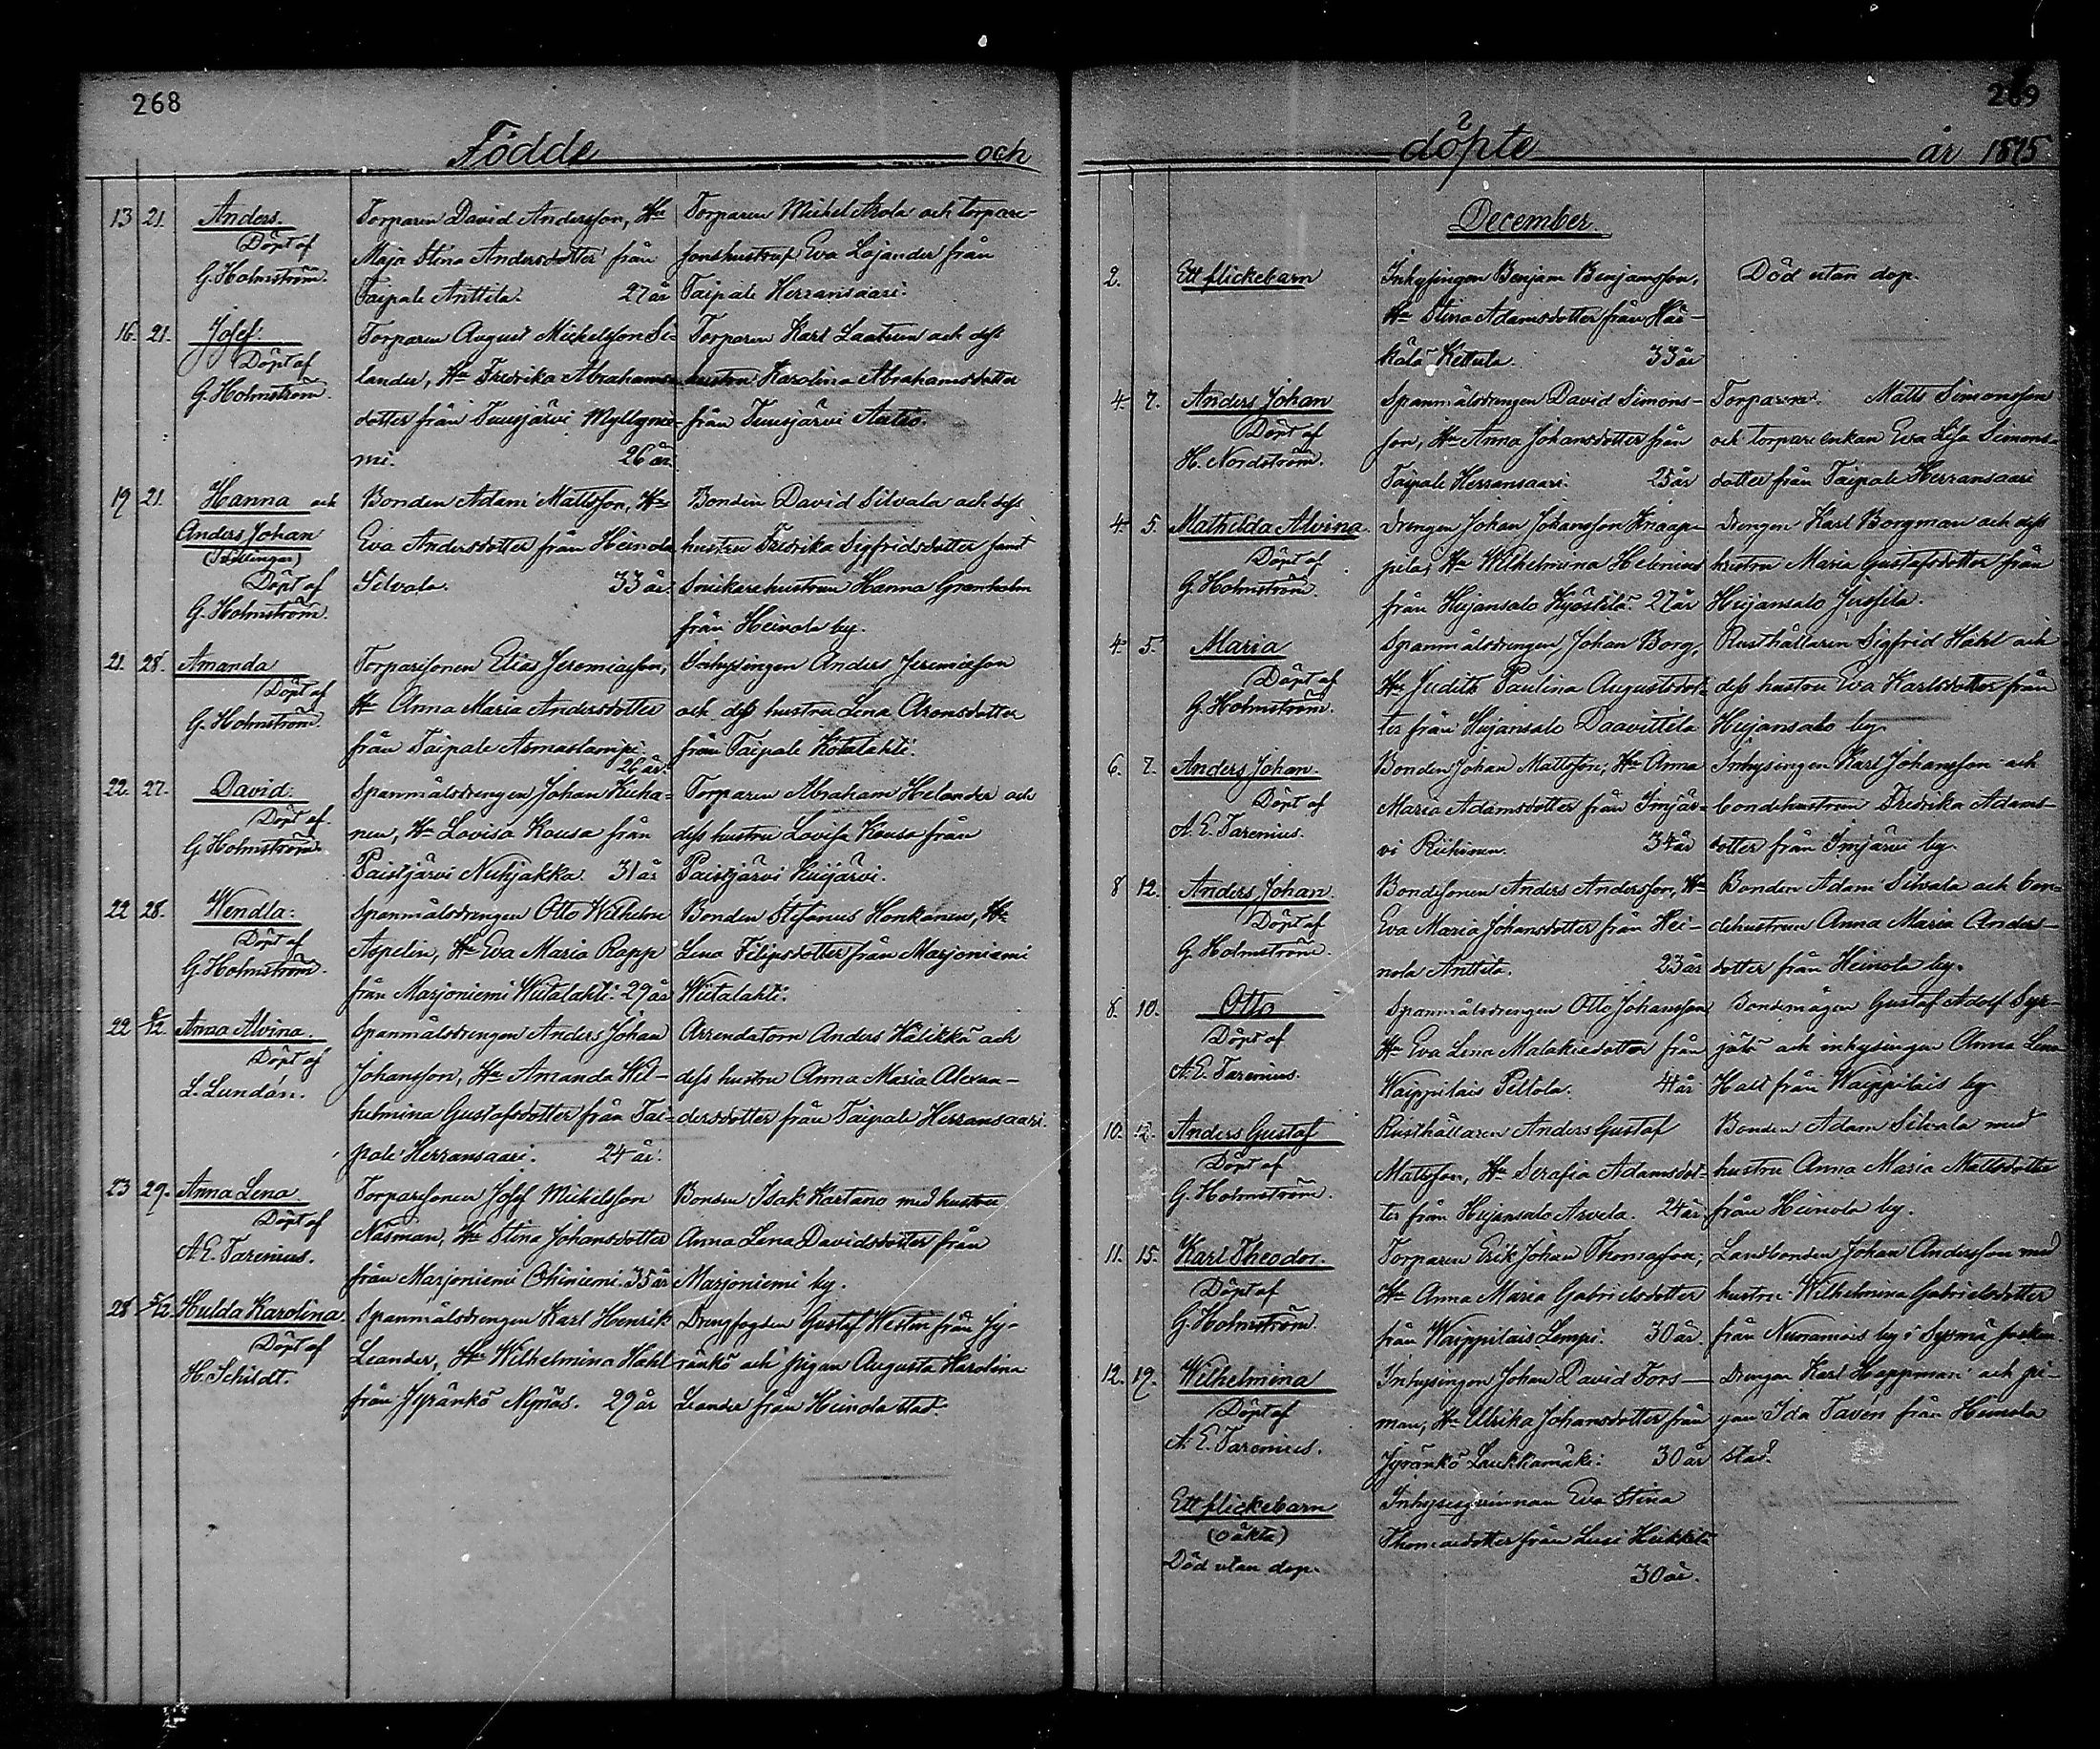 268
Födde och
13 21. Anders. Torparen David Andersson, Hu Torparen Mickel Akola och torpare-
Döpt af Maja Stina Andersdotter från sonshustrun Eva Lojander från
G. Holmström. Taipale Anttila. 27 år Taipale Herransaari.
16. 21. Josef. Torparen August Mickelsson Si- Torparen Karl Laatunen och dess
Döpt af lander, Hu Fredrika Abrahams- hustru Karolina Abrahamsdotter
G. Holmström. dotter från Tuusjärvi Myllynie- från Tuusjärvi Autio.
mi. 26 år
19 21. Hanna och Bonden Adam Mattsson, Hu Bonden David Silvala och dess
Anders Johan Eva Andersdotter från Heinola hustru Fredrika Sigfridsdotter samt
(Tvillingar) Silvala. 33 år. Snickarehustrun Hanna Grönholm
Döpt af från Heinola by.
G. Holmström.
21. 28. Amanda Torparesonen Elias Jeremiasson, Inhysingen Anders Jeremiasson
Döpt af Hu Anna Maria Andersdotter och dess hustru Lena Aronsdotter
G. Holmström. från Taipale Asmaslampi. från Taipale Kotalahti.
26 år.
22. 27. David. Spanmålsdrengen Johan Kuha- Torparen Abraham Helander och
Döpt af nen, Hu Lovisa Kousa från dess hustru Lovisa Kousa från
G. Holmström. Paistjärvi Nuhjakka. 31 år Paistjärvi Kuijärvi.
22 28. Wendla: Spanmålsdrengen Otto Wilhelm Bonden Stefanus Honkanen, Hu
Döpt af Aspelin, Hu Eva Maria Rapp Lena Filipsdotter från Marjoniemi
G. Holmström. från Marjoniemi Wiitalahti. 29 år Wiitalahti.
22 /12 Anna Alvina. Spanmålsdrengen Anders Johan Arrendatorn Anders Kälikkä och
Döpt af Johansson, Hu Amanda Wil- dess hustru Anna Maria Alexan-
L. Lundán. helmina Gustafsdotter från Tai- dersdotter från Taipale Herransaari.
pale Herransaari. 24 år.
23 29. Anna Lena Torparesonen Josef Mickelsson Bonden Isak Kartano med hustru
Döpt af Näsman, Hu Stina Johansdotter Anna Lena Davidsdotter från
A. E. Tarenius. från Marjoniemi Ohiniemi. 35 år Marjoniemi by.
28 5/12. Hulda Karolina. Spanmålsdrengen Karl Henrik Drengfogden Gustaf Westin från Jy-
Döpt af Leander, Hu Wilhelmina Hahl ränkö och pigan Augusta Karolina
H. Schildt. från Jyränkö Nynäs. 29 år Leander från Heinola stad.
269
döpte år 1875
December
2. Ett flickebarn Inhysingen Benjam Benjamsson, Död utan dop.
Hu Stina Adamsdotter från Här-
kälä Kettula. 33 år
4. 7. Anders Johan Spanmålsdrengen David Simons- Torparen Matts Simonsson
Döpt af son, Hu Anna Johansdotter från och torpare enkan Eva Lisa Simons-
H. Nordström. Taipale Herransaari. 25 år dotter från Taipale Herransaari
4. 5. Mathilda Alvina. Drengen Johan Johansson Knaap- Drengen Karl Borgman och dess
Döpt af pela, Hu Wilhelmina Helenius hustru Maria Gustafsdotter från
G. Holmström. från Hujansalo Kyöstilä. 27 år Hujansalo Jussila.
4. 5. Maria Spanmålsdrengen Johan Borg, Rusthållaren Sigfrid Hahl och
Döpt af Hu Judith Paulina Augustsdot- dess hustru Eva Karlsdotter från
G. Holmström. ter från Hujansalo Daavittila Hujansalo by
6. 7. Anders Johan. Bonden Johan Mattsson, Hu Anna Inhysingen Karl Johansson och
Döpt af Maria Adamsdotter från Imjär- bondehustrun Fredrika Adams-
A. E. Tarenius. vi Riihinen. 34 år dotter från Imjärvi by.
8 12. Anders Johan. Bondesonen Anders Andersson, Hu Bonden Adam Silvala och bon-
Döpt af Eva Maria Johansdotter från Hei- dehustrun Anna Maria Anders-
G. Holmström. nola Anttila. 23 år dotter från Heinola by.
8. 10. Otto Spanmålsdrengen Otto Johansson Bondemågen Gustaf Adolf Syr-
Döpt af Hu Eva Lena Malakiedotter från jälä och inhysingen Anna Lena
A. E. Tarenius. Waippilais Peltola. 41 år Hall från Waippilais by
10. 12. Anders Gustaf Rusthållaren Anders Gustaf Bonden Adam Silvala med
Döpt af Mattsson, Hu Serafia Adamsdot- hustru Anna Maria Mattsdotter
G. Holmström. ter från Hujansalo Arvela. 24 år från Heinola by.
11. 15. Karl Theodor. Torparen Erik Johan Thomasson, Landbonden Johan Andersson med
Döpt af Hu Anna Maria Gabrielsdotter hustru Wilhelmina Gabrielsdotter
G. Holmström. från Waippilais Lempi. 30 år. från Nuoramois by i Sysmä socken.
12. 19. Wilhelmina Inhysingen Johan David Fors- Drengen Karl Happman och pi-
Döpt af man, Hu Ulrika Johansdotter från gan Ida Tavén från Heinola
A. E. Tarenius. Jyränkö Laukkamäki. 30 år stad.
Ett flickebarn Inhysesqvinnan Eva Stina
(oäkta) Thomasdotter från Lusi Heikkilä
Död utan dop. 30 år.